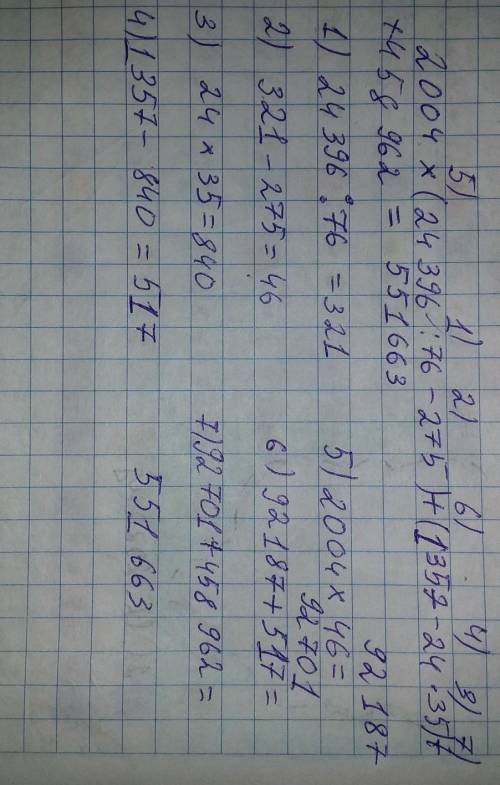 5) 1) 2) 6) 4) 3) 7)
2004 × (24 396 : 76 - 275) + (1357 - 24 · 35) +
+ 458 962 = 551 663
92 187
1) 24 396 : 76 = 321
5) 2004 × 46 =
2) 321 - 275 = 46
92 701
6) 92 187 + 517 =
3) 24 × 35 = 840
7) 92 701 + 458 962 =
4) 1357 - 840 = 517
551 663